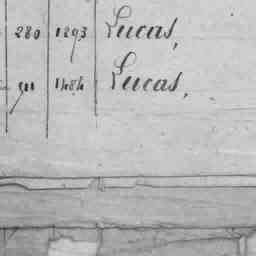 280 1893 Lucas,
911 1484 Lucas,